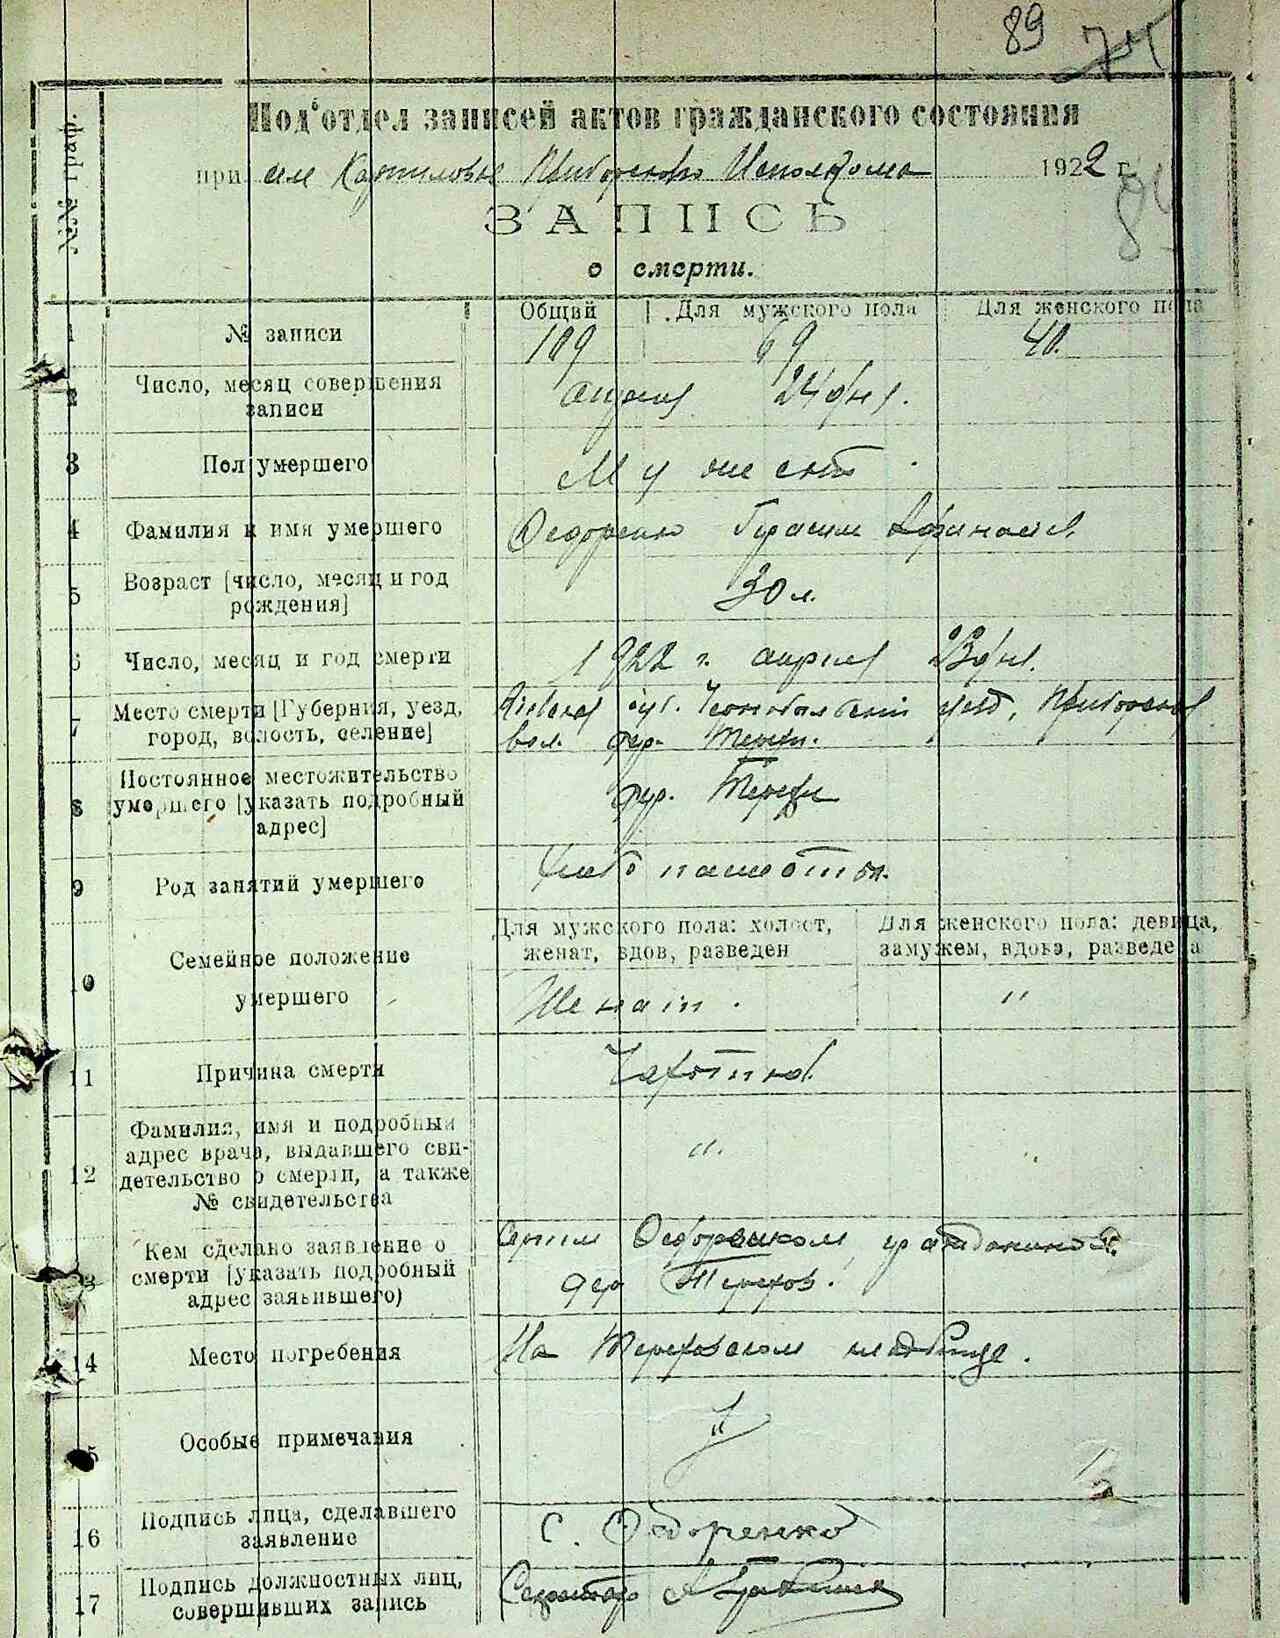 89
№№ граф.
Под'отдел записей актов гражданского состояния
при Исполкома 1922 г.
ЗАПИСЬ
о смерти.
Общий Для мужского пола Для женского пола
1 № записи 109 69 40.
2 Число, месяц совершения
записи апреля 24 дня.
3 Пол умершего Мужск
4 Фамилия и имя умершего Федоренко Герасим
5 Возраст [число, месяц и год
рождения] 30 л.
6 Число, месяц и год смерти 1922 г. апреля 23 дня.
7 Место смерти [Губерния, уезд, Киевская губ. Чернобыльский уезд,
город, волость, селение] вол. дер.
8 Постоянное местожительство
умершего [указать подробный дер.
адрес]
9 Род занятий умершего
Для мужского пола: холост, Для женского пола: девица,
женат, вдов, разведен замужем, вдова, разведена
10 Семейное положение
умершего Женат. "
11 Причина смерти Чахотка.
12 Фамилия, имя и подробный
адрес врача, выдавшего сви-
детельство о смерти, а также
№ свидетельства ".
Кем сделано заявление о
смерти [указать подробный
адрес заявившего) дер
14 Место погребения На кладбище.
Особые примечания "
16 Подпись лица, сделавшего
заявление С. Федоренко
17 Подпись должностных лиц,
совершивших запись Секретарь